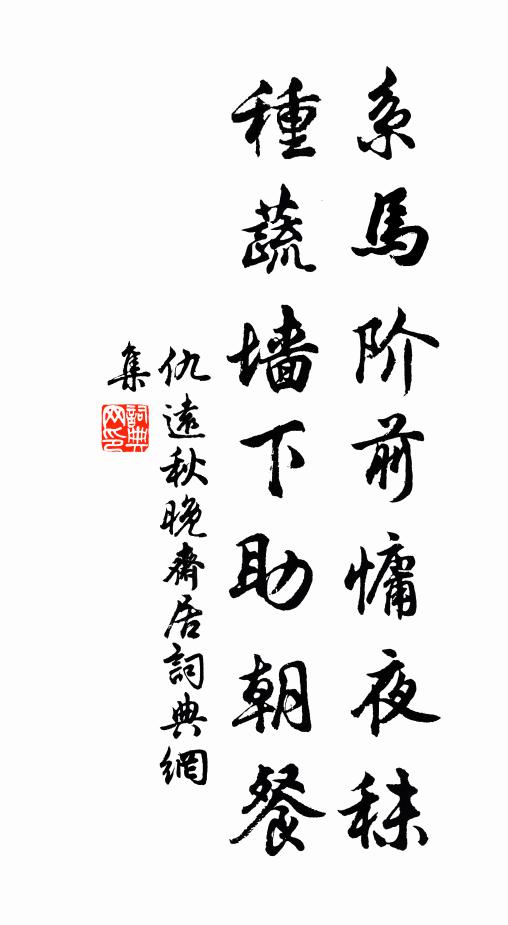 系馬阶前慵夜秣
種蔬墙下助朝餐
仇遠秋晚齋居詞典網
集
詞典網印